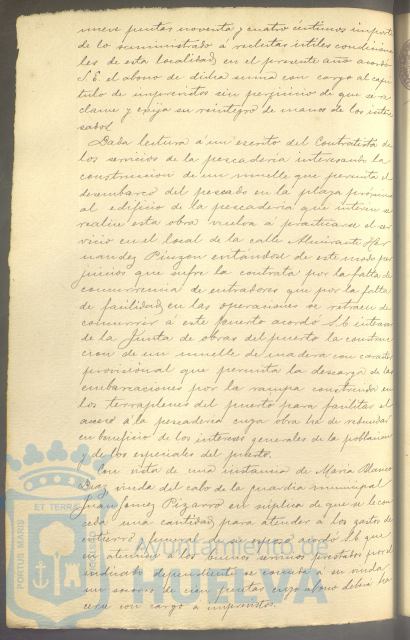 nueve pesetas noventa y cuatro céntimos importe
de lo suministrado á reclutas útiles condiciona
les de esta localidad en el presente año acordó
S.E. el abono de dicha suma con cargo al capí
tulo de imprevistos sin perjuicio de que se re
clame y exija su reintegro de manos de los inte
sados
Dada lectura á un escrito del Contratista de
los servicios de la pescadería interesando la
construccion de un muelle que permita el
desembarco del pescado en la plaza próxima
al edificio de la pescadería que interin se
realice esta obra vuelva á practicarse el ser
vicio en el local de la calle Almirante Her
nandez Pinzon evitándose de este modo per
juicios que sufre la contrata por la falta de
concurrencia de entradores que por la falta
de facilidad en las operaciones se retraen de
concurrir á este puerto acordó S.E. interesar
de la Junta de obras del puerto la construc
cion de un muelle de madera con caracter
provisional que permita la descarga de las
embarcaciones por la rampa construida en
los terraplenes del puerto para facilitar el
acceso á la pescadería cuya obra ha de redundar
en beneficio de los intereses generales de la poblacion
y de los especiales del puerto.
Con vista de una instancia de María
Diaz viuda del cabo de la guardia municipal
Juan Pizarro en súplica de que se le con
ceda una cantidad para atender á los gastos de
entierro y funeral de su esposo acordó S.E. que
en atencion á los buenos servicios prestados por el
indicado dependiente se conceda á su viuda
un socorro de cien pesetas cuyo abono deberá ha
cerse con cargo á imprevistos.
PORTUS MARIS
ET TERRAE
CUSTODIA
Ayuntamiento de
HUELVA